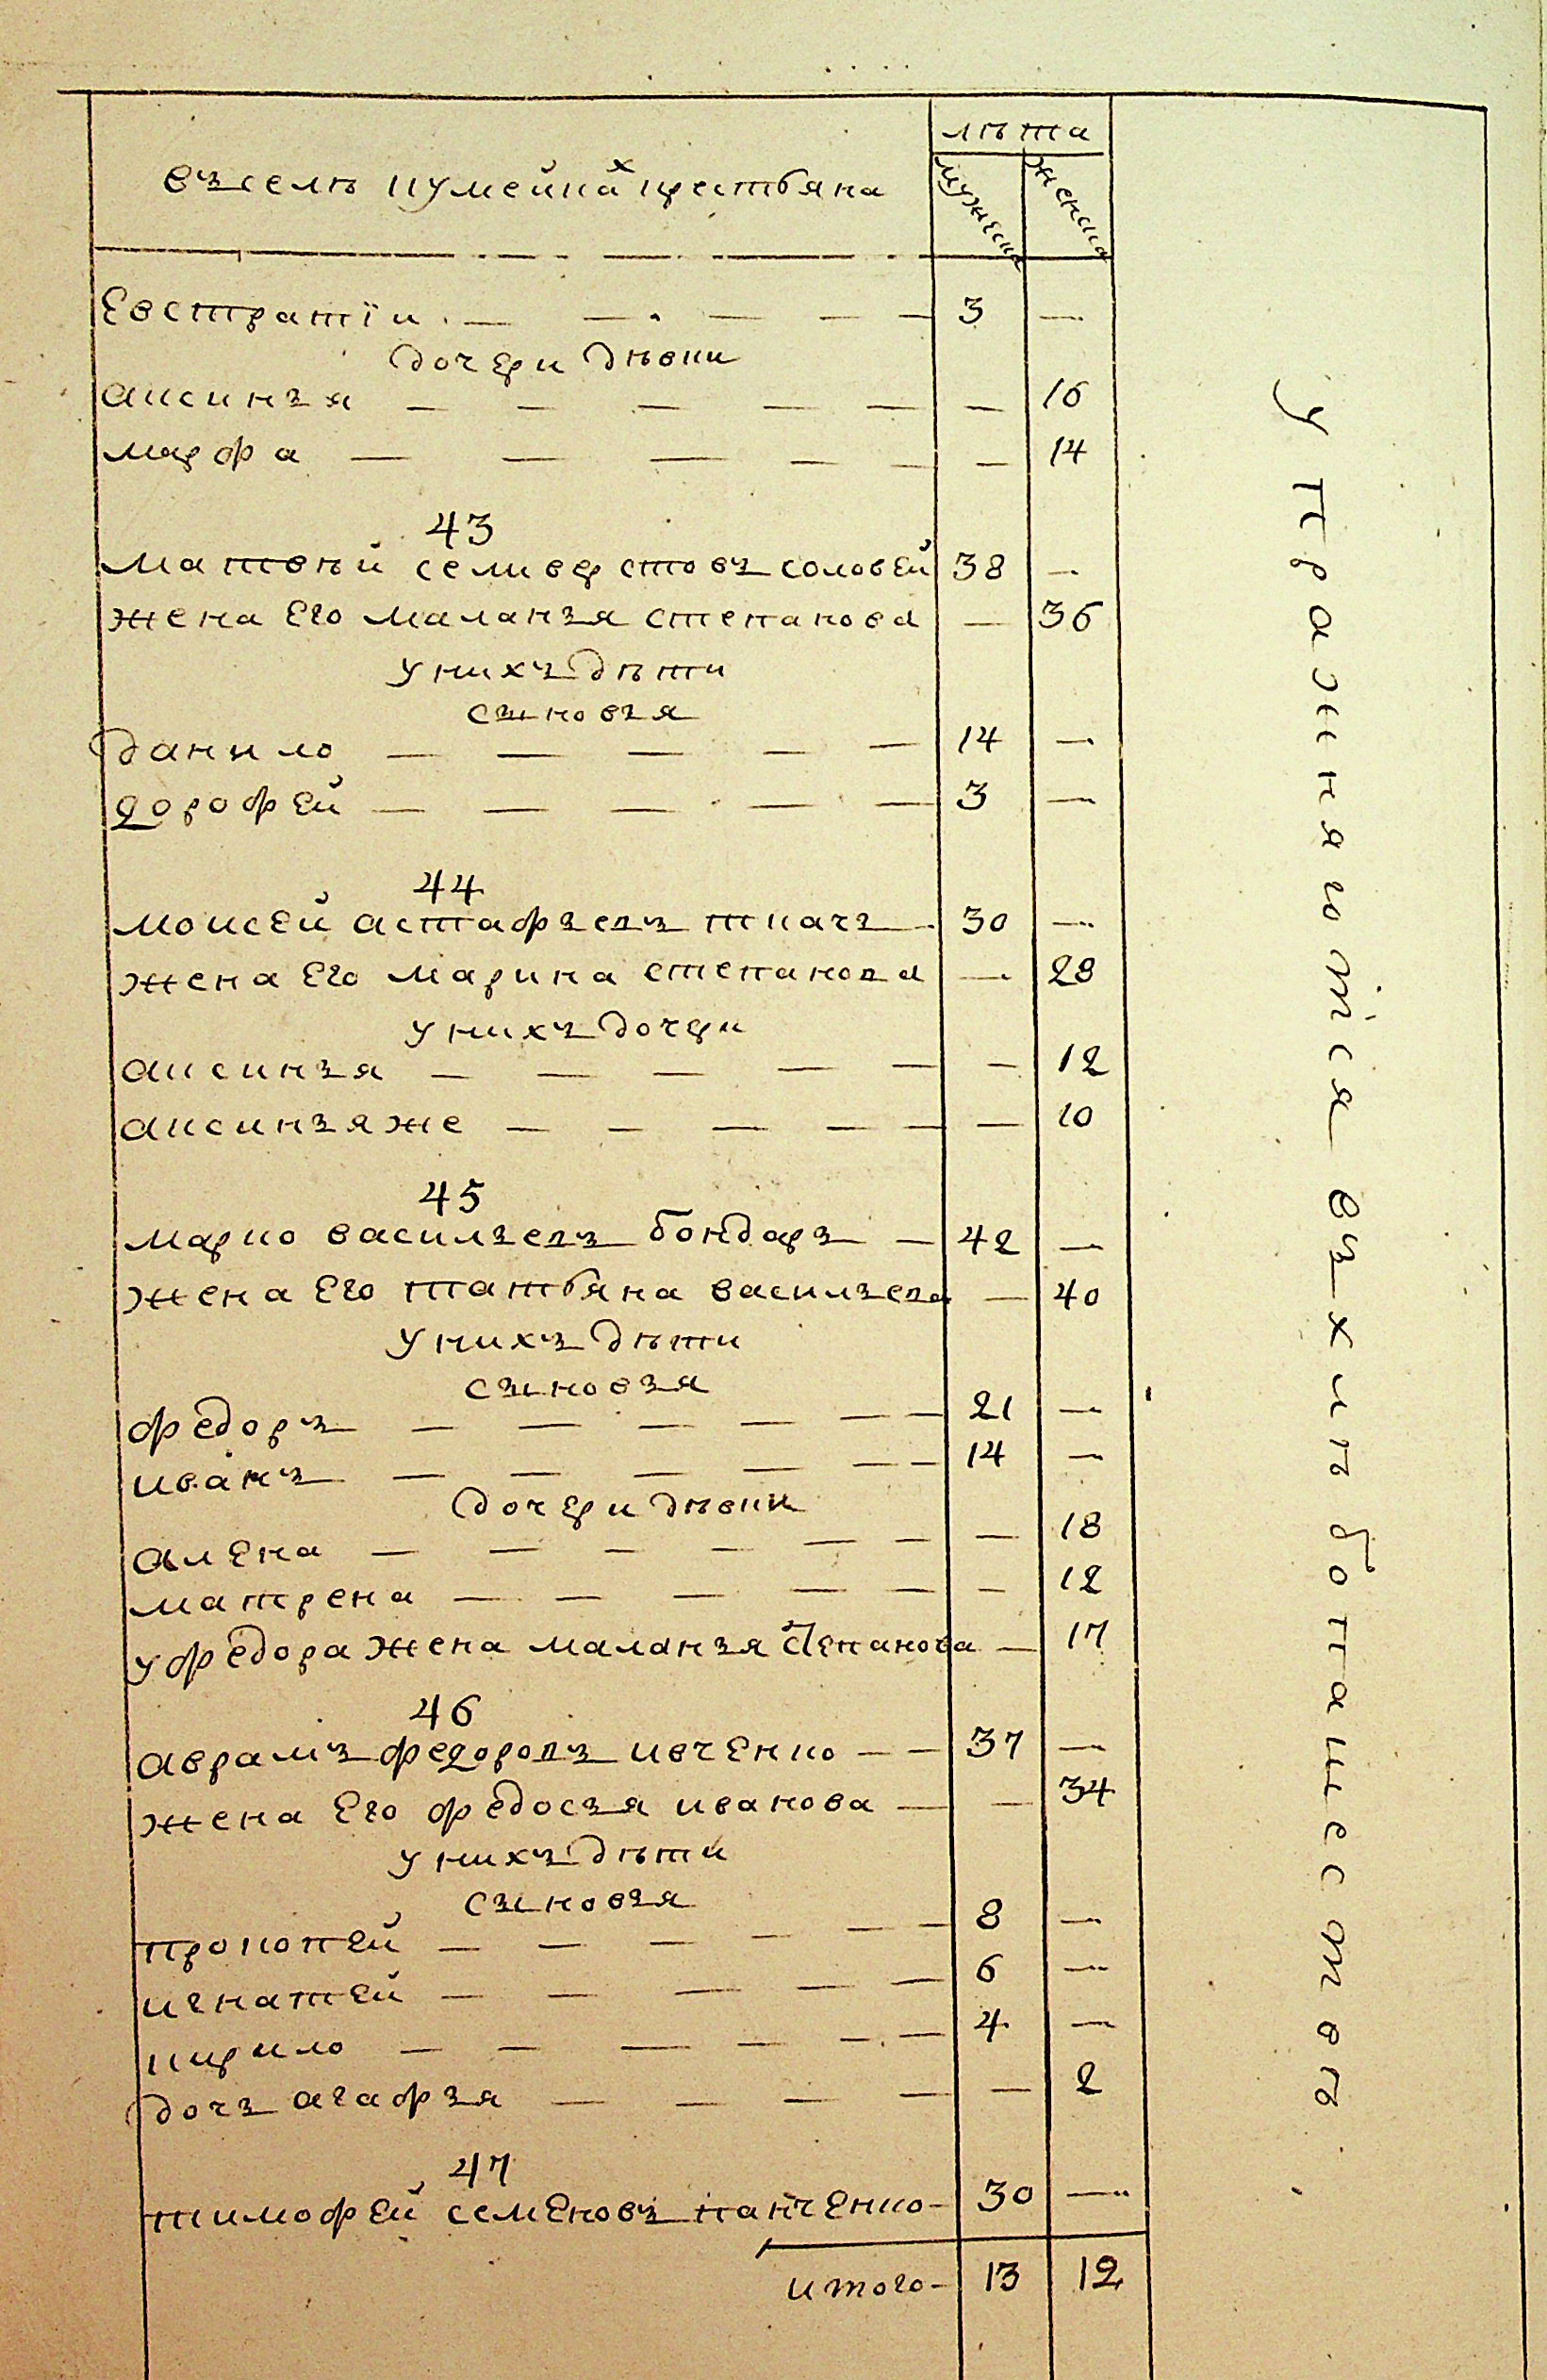 лѣта
въ селѣ кумейках крестьяна
мужеска
женска
Евстратїи 3 —
дочери дѣвки
аксинья — 16
марфа — 14
43
матвѣй селиверстовъ соловей 38 —
жена Его маланья степанова — 36
у нихъ дѣти
сыновья
данило 14 —
дорофей 3 —
44
моисей астафьевъ ткачь 30 —
жена Его марина степанова — 28
у нихъ дочери
аксинья — 12
аксинья же — 10
45
марко васильевъ бондарь 42 —
жена Его татьяна васильева — 40
у нихъ дѣти
сыновья
федоръ 21 —
иванъ 14 —
дочери дѣвки
алена — 18
матрена — 12
у федора жена маланья степанова — 17
46
аврамъ федоровъ ивченко 37 —
жена Его федосья иванова — 34
у нихъ дѣти
сыновья
прокопей 8 —
игнатей 6 —
кирило 4 —
дочь агафья — 2
47
тимофей семеновъ панченко 30 —
итого 13 12
упражняются въ хлѣбопашествѣ